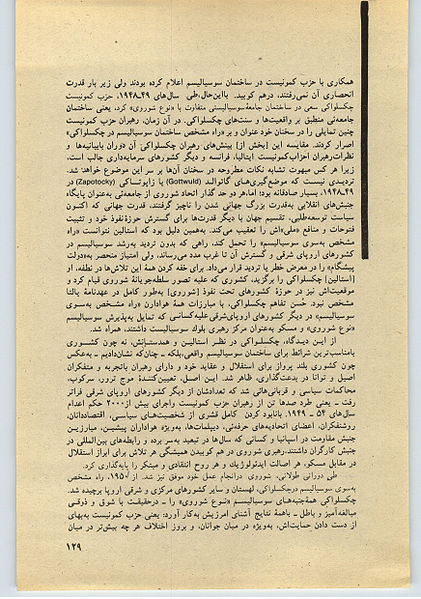 همکاری با حزب کمونیست در ساختمان سوسیالیسم اعلام کرده بودند ولی زیر بار قدرت
انحصاری آن نمی‌رفتند، درهم کوبید. بااین‌حال،طی سال‌های ۴۹ـ۱۹۴۸، حزب کمونیست
چکسلواکی سعی در ساختمان جامعهٔ‌سوسیالیستی متفاوت با «نوع شوروی» کرد، یعنی ساختمان
جامعه‌ئی منطبق بر واقعیت‌ها و سنت‌های چکسلواکی. در آن زمان، رهبران حزب کمونیست
چنین تمایلی را در سخنان خود عنوان و بر «راه مشخص ساختمان سوسیالیسم در چکسلواکی»
اصرار کردند. مقایسه این [بخش از] بینش‌های رهبران چکسلواکی آن دوران بابیانیه‌ها و
نظرات‌رهبران احزاب‌کمونیست ایتالیا، فرانسه و دیگر کشورهای سرمایه‌داری جالب است،
زیرا هر کس مبهوت تشابه نکات مطروحه در سخنان آن‌ها بر سر این موضوع خواهد شد.
تردیدی نیست که موضع‌گیری‌های گاتوالد (Gottwuld) یا زاپوتاکی (Zapotocky) در
۴۹ـ۱۹۴۸، بسیار صادقانه بود؛ اما هر دو حد گذار اتحاد شوروی از جامعه‌ئی بعنوان پایگاه
جنبش‌های انقلابی به‌قدرت بزرگ جهانی شدن را ناچیز گرفتند، قدرت جهانی که اکنون
سیاست توسعه‌طلبی، تقسیم جهان با دیگر قدرت‌ها برای گسترش حوزهٔ‌نفوذ خود و تثبیت
فتوحات و منافع «ملی»‌اش را تعقیب می‌کند. به‌همین دلیل بود که استالین نتوانست «راه
مشخص به‌سوی سوسیالیسم» را تحمل کند، راهی که بدون تردید به‌رشد سوسیالیسم در
کشورهای اروپای شرقی و گسترش آن تا غرب مدد می‌رساند، ولی امتیاز منحصر به«دولت
پیشگام» را در معرض خطر یا تردید قرار می‌داد. برای خفه کردن همهٔ این تلاش‌ها در نطفه، او
[استالین] چکسلواکی را برگزید، کشوری که علیه تصور سلطه‌جویانهٔ شوروی قیام کرد و
موقعیت‌اش نیز در حوزهٔ کشورهای تحت نفوذ [شوروی] به‌طور کامل در عهدنامهٔ یالتا
مشخص نبود. حُسن تفاهم چکسلواکی، با مبارزات همهٔ هواداران «راه مشخص به‌سوی
سوسیالیسم» در دیگر کشورهای اروپای‌شرقی علیه‌کسانی که تمایل به‌پذیرش سوسیالیسم
«نوع شوروی» و مسکو به‌عنوان مرکز رهبری بلوک سوسیالیست داشتند، همراه شد.
از این دیدگاه، چکسلواکی در نظر استالین و همدستانش، نه چون کشوری
بامناسب‌ترین شرائط برای ساختمان سوسیالیسم واقعی،بلکه ـ چنان‌که نشان‌دادیم ـ به‌عکس
چون کشوری بلند پرواز برای استقلال و عقاید خود و دارای رهبران باتجربه و متفکران
اصیل و توانا در بدعت‌گذاری، ظاهر شد. این اصل، تعیین‌کنندهٔ موج ترور، سرکوب،
محاکمات سیاسی و قربانی‌هائی شد که تعدادشان از دیگر کشورهای اروپای شرقی فراتر
رفت ـ یعنی طرد صدها تن از رهبران حزب کمونیست واجرای بیش از۲۰۰۰ حکم اعدام
سال‌های ۵۴ ـ ۱۹۴۹. بانابود کردن کامل قشری از شخصیت‌های سیاسی، اقتصاددانان،
روشنفکران، اعضای اتحادیه‌های حرفه‌ئی، دیپلمات‌ها، به‌ویژه هواداران پیشین، مبارزین
جنبش مقاومت در اسپانیا و کسانی که سال‌ها در تبعید به‌سر برده و رابطه‌های بین‌المللی در
جنبش کارگران داشتند،رهبری شوروی در هم کوبیدن همیشگی هر تلاش برای ابراز استقلال
در مقابل مسکو، هر اصالت ایدئولوژیك و هر روح انتقادی و مبتکر را پایه‌گذاری کرد.
طی دورانی طولانی، شوروی درانجام عمل خود موفق نیز شد. از ۱۹۵۰، راه مشخص
به‌سوی سوسیالیسم درچکسلواکی، لهستان و سایر کشورهای مرکزی و شرقی اروپا برچیده شد.
چکسلواکی همهٔ‌جنبه‌های سوسیالیسم «نوع شوروی» را ـ درحقیقت با شوق و ذوقی
مبالغه‌آمیز و باطل ـ باهمهٔ نتایج آشنای امرزیش به‌کار آورد: یعنی حزب کمونیست به‌بهای
از دست دادن حمایت‌اش، به‌ویژه در میان جوانان، و بروز اختلاف هر چه بیش‌تر در میان
۱۲۹